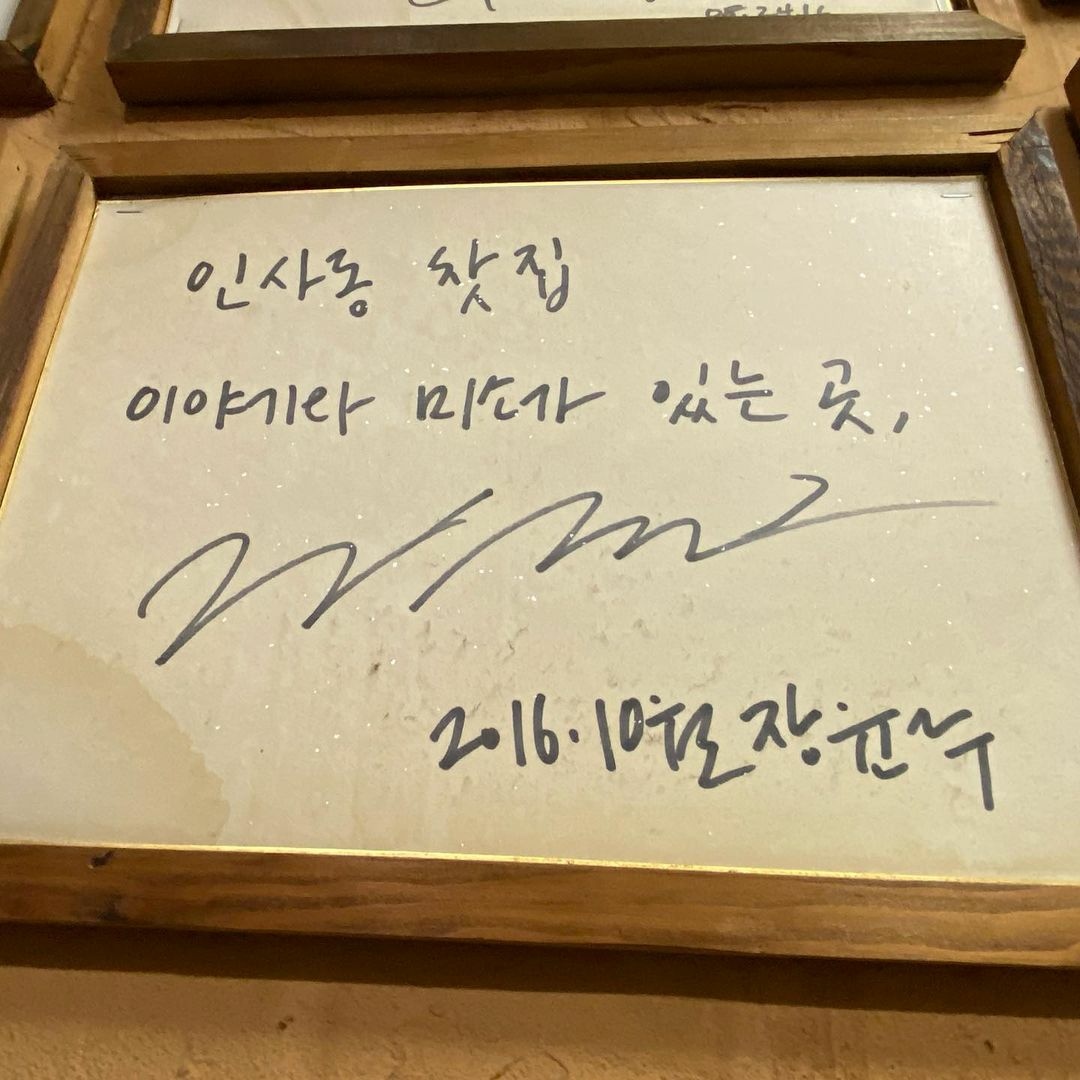 인사동 찻집
이야기와 미소가 있는 곳,
2016.10월 장윤수